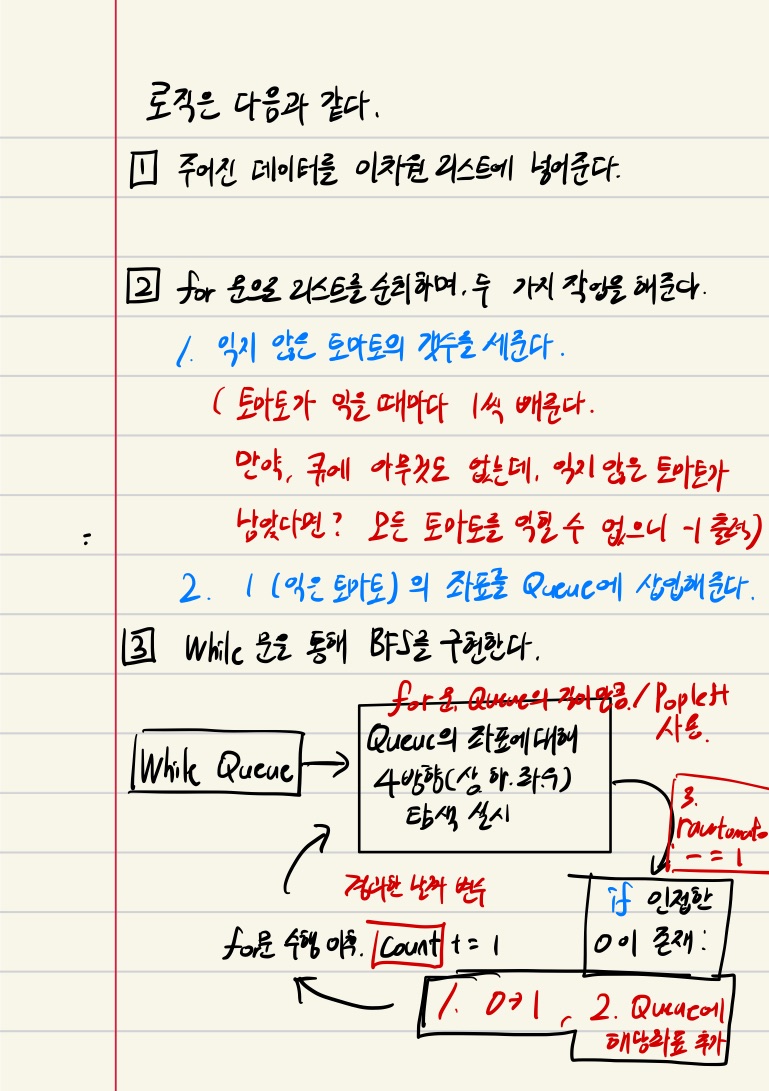 로직은 다음과 같다.
1 주어진 데이터를 이차원 리스트에 넣어준다.
2 for 문으로 리스트를 순회하며, 두 가지 작업을 해준다.
1. 익지 않은 토마토의 갯수를 세준다.
( 토마토가 익을 때마다 1씩 빼준다.
만약, 큐에 아무것도 없는데, 익지 않은 토마토가
남았다면? 모든 토마토를 익힐 수 없으니 -1 출력)
2. 1 (익은 토마토) 의 좌표를 Queue에 삽입해준다.
:
3 While 문을 통해 BFS를 구현한다.
for문, Queue의 길이만큼. / Popleft
사용.
While Queue
Queue의 좌표에 대해
4방향(상,하,좌,우)
탐색 실시
3.
rawtomato
- = 1
경과한 날짜 변수
if 인접한
0이 존재:
for문 수행 이후. count += 1
1. 0→1, 2. Queue에
해당좌표 추가